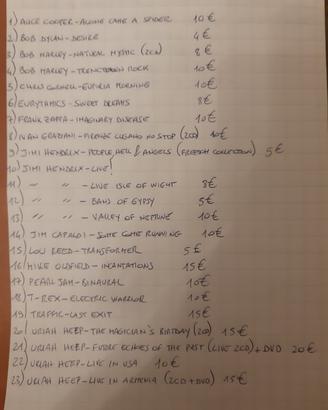 1) ALICE COOPER - ALONG CAME A SPIDER 10€
2) BOB DYLAN - DESIRE 4€
3) BOB MARLEY - NATURAL MYSTIC (2CD) 8€
4) BOB MARLEY - TRENCHTOWN ROCK 10€
5) CHRIS CORNELL - EUPHORIA MORNING 10€
6) EURYTHMICS - SWEET DREAMS 8€
7) FRANK ZAPPA - IMAGINARY DISEASE 10€
8) IVAN GRAZIANI - FIRENZE LUGANO NO STOP (2CD) 10€
9) JIMI HENDRIX - PEOPLE, HELL & ANGELS (FREESH COLLECTION) 5€
10) JIMI HENDRIX - LIVE!
11) " " - LIVE ISLE OF WIGHT 8€
12) " " - BAND OF GYPSY 5€
13) " " - VALLEY OF NEPTUNE 10€
14) JIM CAPALDI - SOME COME RUNNING 10€
15) LOU REED - TRANSFORMER 5€
16) MIKE OLDFIELD - INCANTATIONS 15€
17) PEARL JAM - BINAURAL 10€
18) T-REX - ELECTRIC WARRIOR 10€
19) TRAFFIC - LAST EXIT 15€
20) URIAH HEEP - THE MAGICIAN'S BIRTHDAY (2CD) 15€
21) URIAH HEEP - FUTURE ECHOES OF THE PAST (LIVE 2CD) + DVD 20€
22) URIAH HEEP - LIVE IN USA 10€
23) URIAH HEEP - LIVE IN ARMENIA (2CD + DVD) 15€